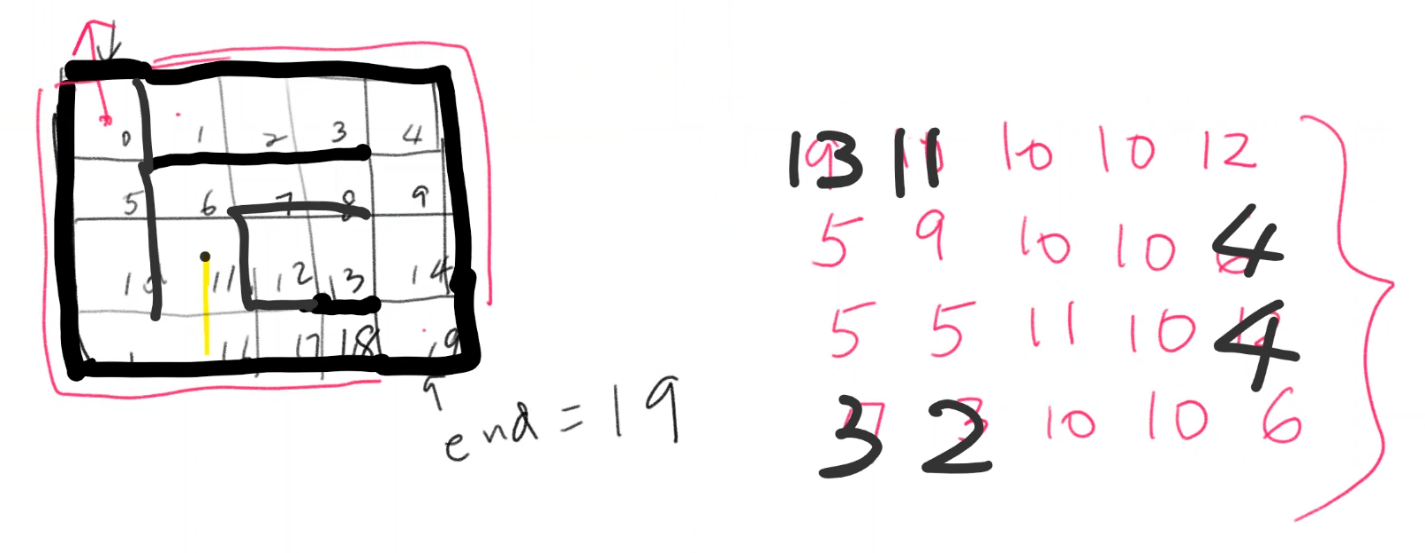 0 1 2 3 4
5 6 7 8 9
10 11 12 13 14
17 18 19
end = 19
13 11 10 10 12
5 9 10 10 4
5 5 11 10 4
3 2 10 10 6